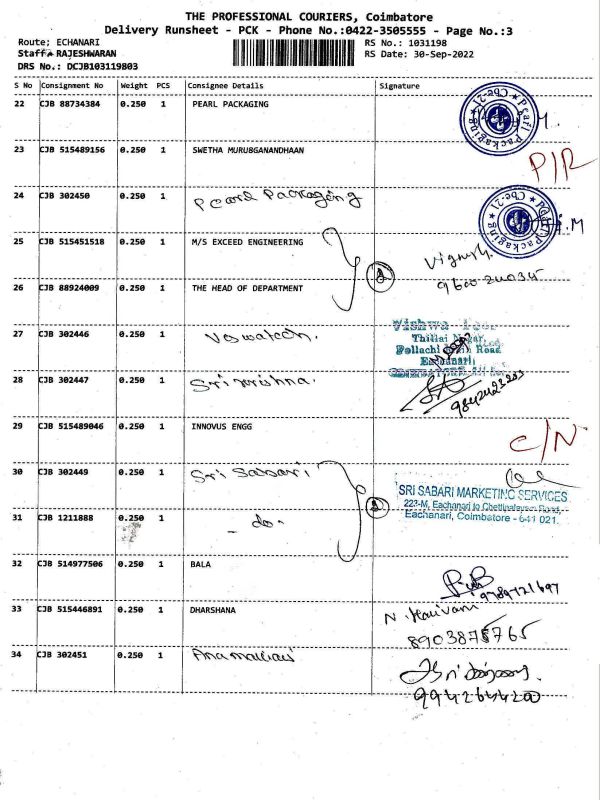 THE PROFESSIONAL COURIERS, Coimbatore
Delivery Runsheet - PCK - Phone No.:0422-3505555 - Page No.:3
Route; ECHANARI RS No.: 1031198
Staff: RAJESHWARAN RS Date: 30-Sep-2022
DRS No.: DCJB103119803
S No Consignment No Weight PCS Consignee Details Signature
22 CJB 88734384 0.250 1 PEARL PACKAGING
Pearl Packaging ★ Cbe-21 ★
23 CJB 515489156 0.250 1 SWETHA MURUBGANANDHAAN P/R
24 CJB 302450 0.250 1 Pearl Packaging
Pearl Packaging ★ Cbe-21 ★
25 CJB 515451518 0.250 1 M/S EXCEED ENGINEERING
2
26 CJB 88924009 0.250 1 THE HEAD OF DEPARTMENT
27 CJB 302446 0.250 1
Vishwa
Thillai Nagar,
Pollachi Main Road
Eachanari,
28 CJB 302447 0.250 1 Sri Krishna.
29 CJB 515489046 0.250 1 INNOVUS ENGG C/N
30 CJB 302449 0.250 1 Sri Sabari
2
SRI SABARI MARKETING SERVICES
223-M, Eachanari to Chettipalayam Road,
Eachanari, Coimbatore - 641 021.
31 CJB 1211888 0.250 1 - do -
32 CJB 514977506 0.250 1 BALA
9789721697
33 CJB 515446891 0.250 1 DHARSHANA
8903875765
34 CJB 302451 0.250 1